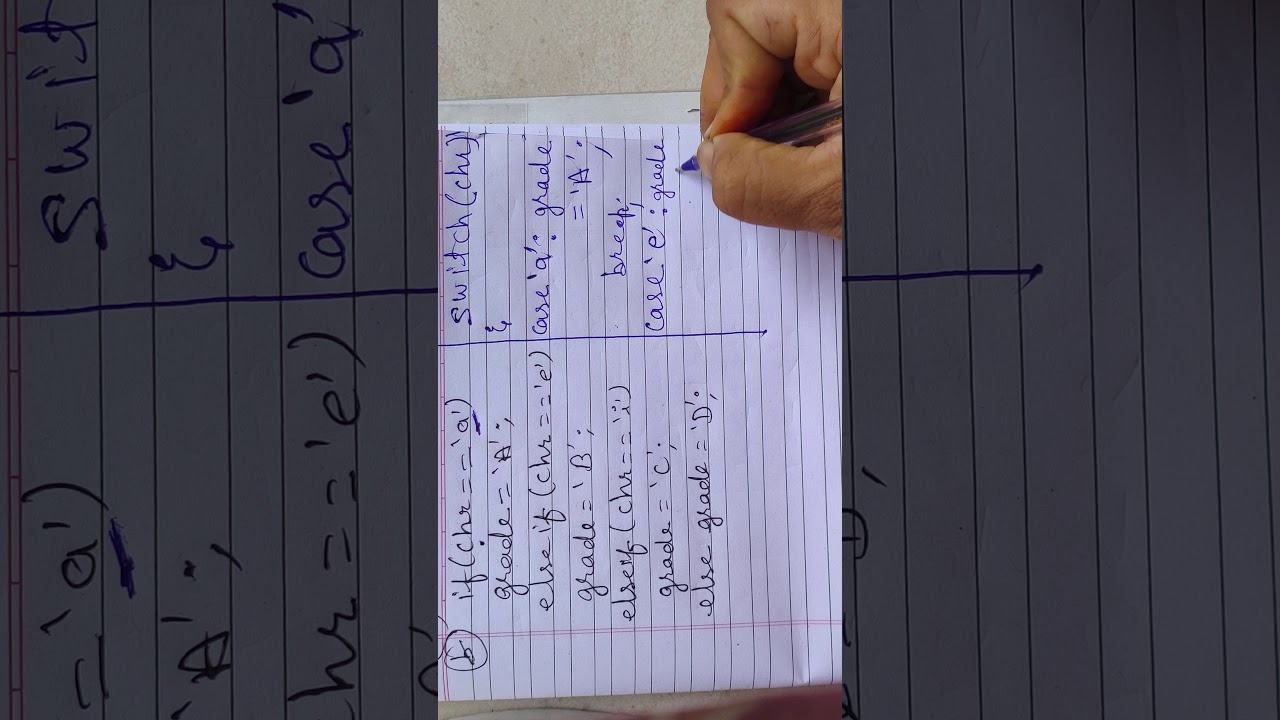 (b) if(chr=='a')
grade='A';
else if(chr=='e')
grade='B';
elseif(chr=='i')
grade='C';
else grade='D';
switch(chr)
{
case 'a': grade
='A';
break;
case 'e': grade